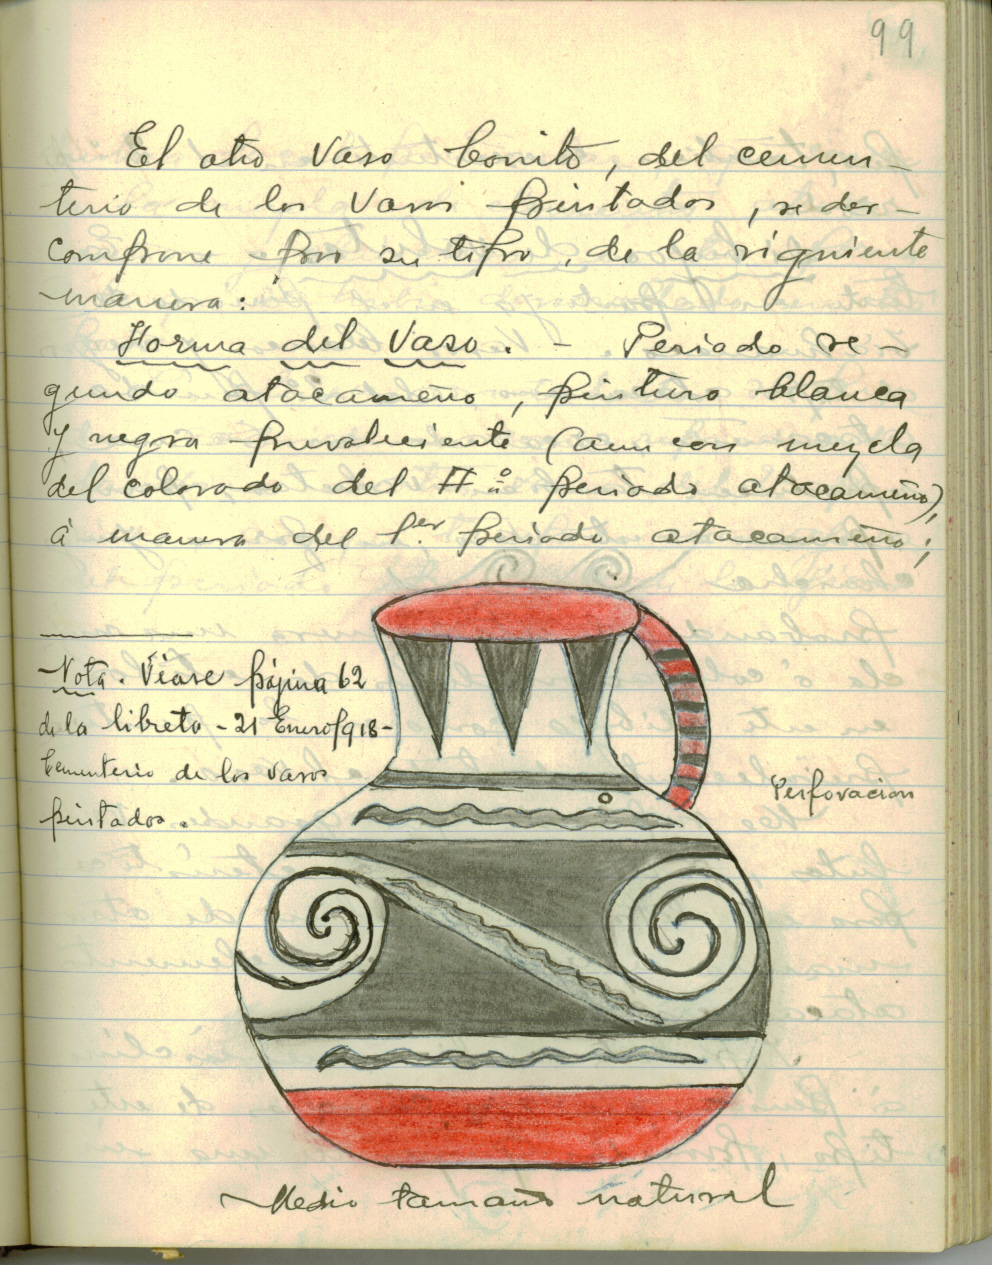 99
El otro vaso bonito, del cemen-
terio de los vasos pintados, se des-
compone por su tipo, de la siguiente
manera:
Forma del Vaso. - Periodo se-
gundo atacameño, pintura blanca
y negra prevaleciente (aun con mezcla
del colorado del IIº periodo atacameño),
á manera del 1.er periodo atacameño;
Nota. Véase página 62
de la libreta - 21 Enero/918-
Cementerio de los vasos
pintados.
Perforacion
Medio tamaño natural